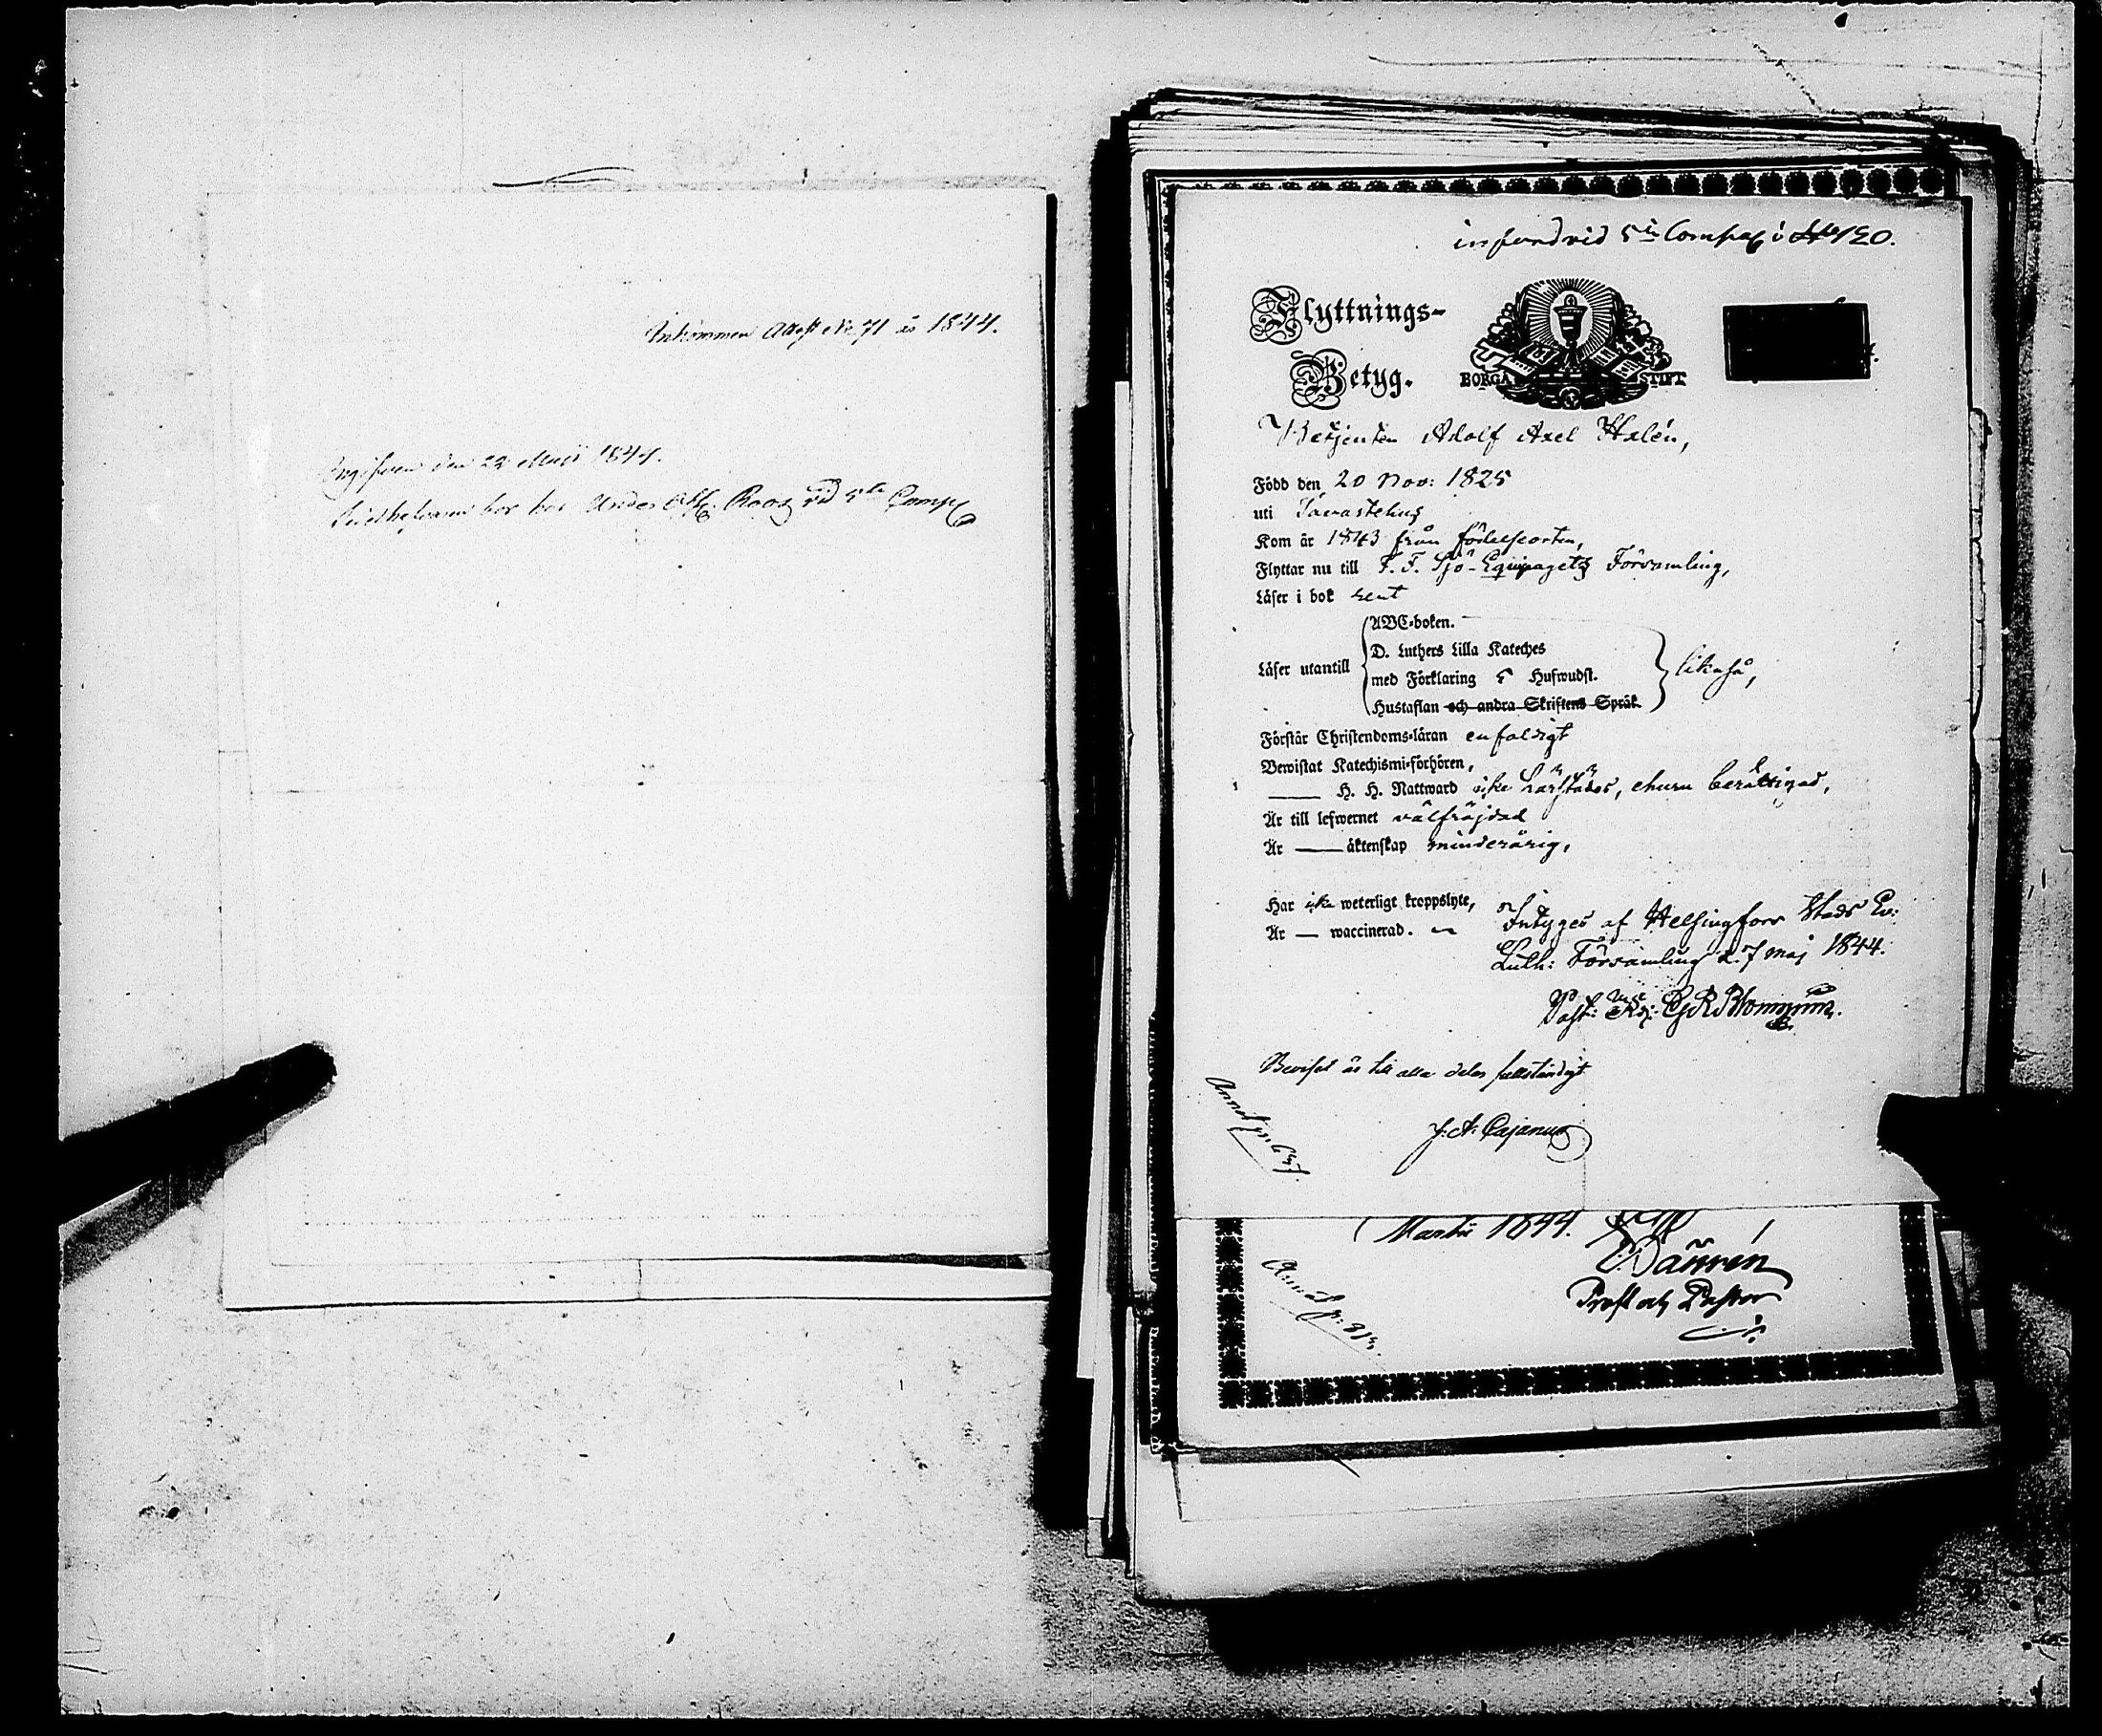 Inkommen Attest No 71 år 1844.
Ingifven den 22 Maji 1844.
bor hos Under Off. Roos vid 5te Comp
införd vid 5te Compag i 120.
Flyttnings-
Betyg.
BORGÅ STIFT
Betjenten Adolf Axel Halén,
Född den 20 Nov: 1825
uti Tavastehus
Kom år 1843 från födelseorten,
Flyttar nu till F. F. Sjö-Equipagets Församling,
Läser i bok rent
Läser utantill
ABC-boken.
D. Luthers Lilla Kateches
med Förklaring 5 Hufwudst.
Hustaflan och andra Skriftens Språk
likaså,
Förstår Christendoms-läran enfaldigt
Bewistat Katechismi-förhören,
—— H. H. Nattward icke härstädes, ehuru berättigad,
Är till lefwernet välfräjdad
Är —— äktenskap minderårig,
Har icke weterligt kroppslyte,
Är — waccinerad.
Intygas af Helsingfors Stads Ev:
Luth: Församling d. 7 maj 1844.
Past: Vice
Beviset är till alla delar fullständigt
J. A. Cajanus
Martii 1844.
Prost och Pastor